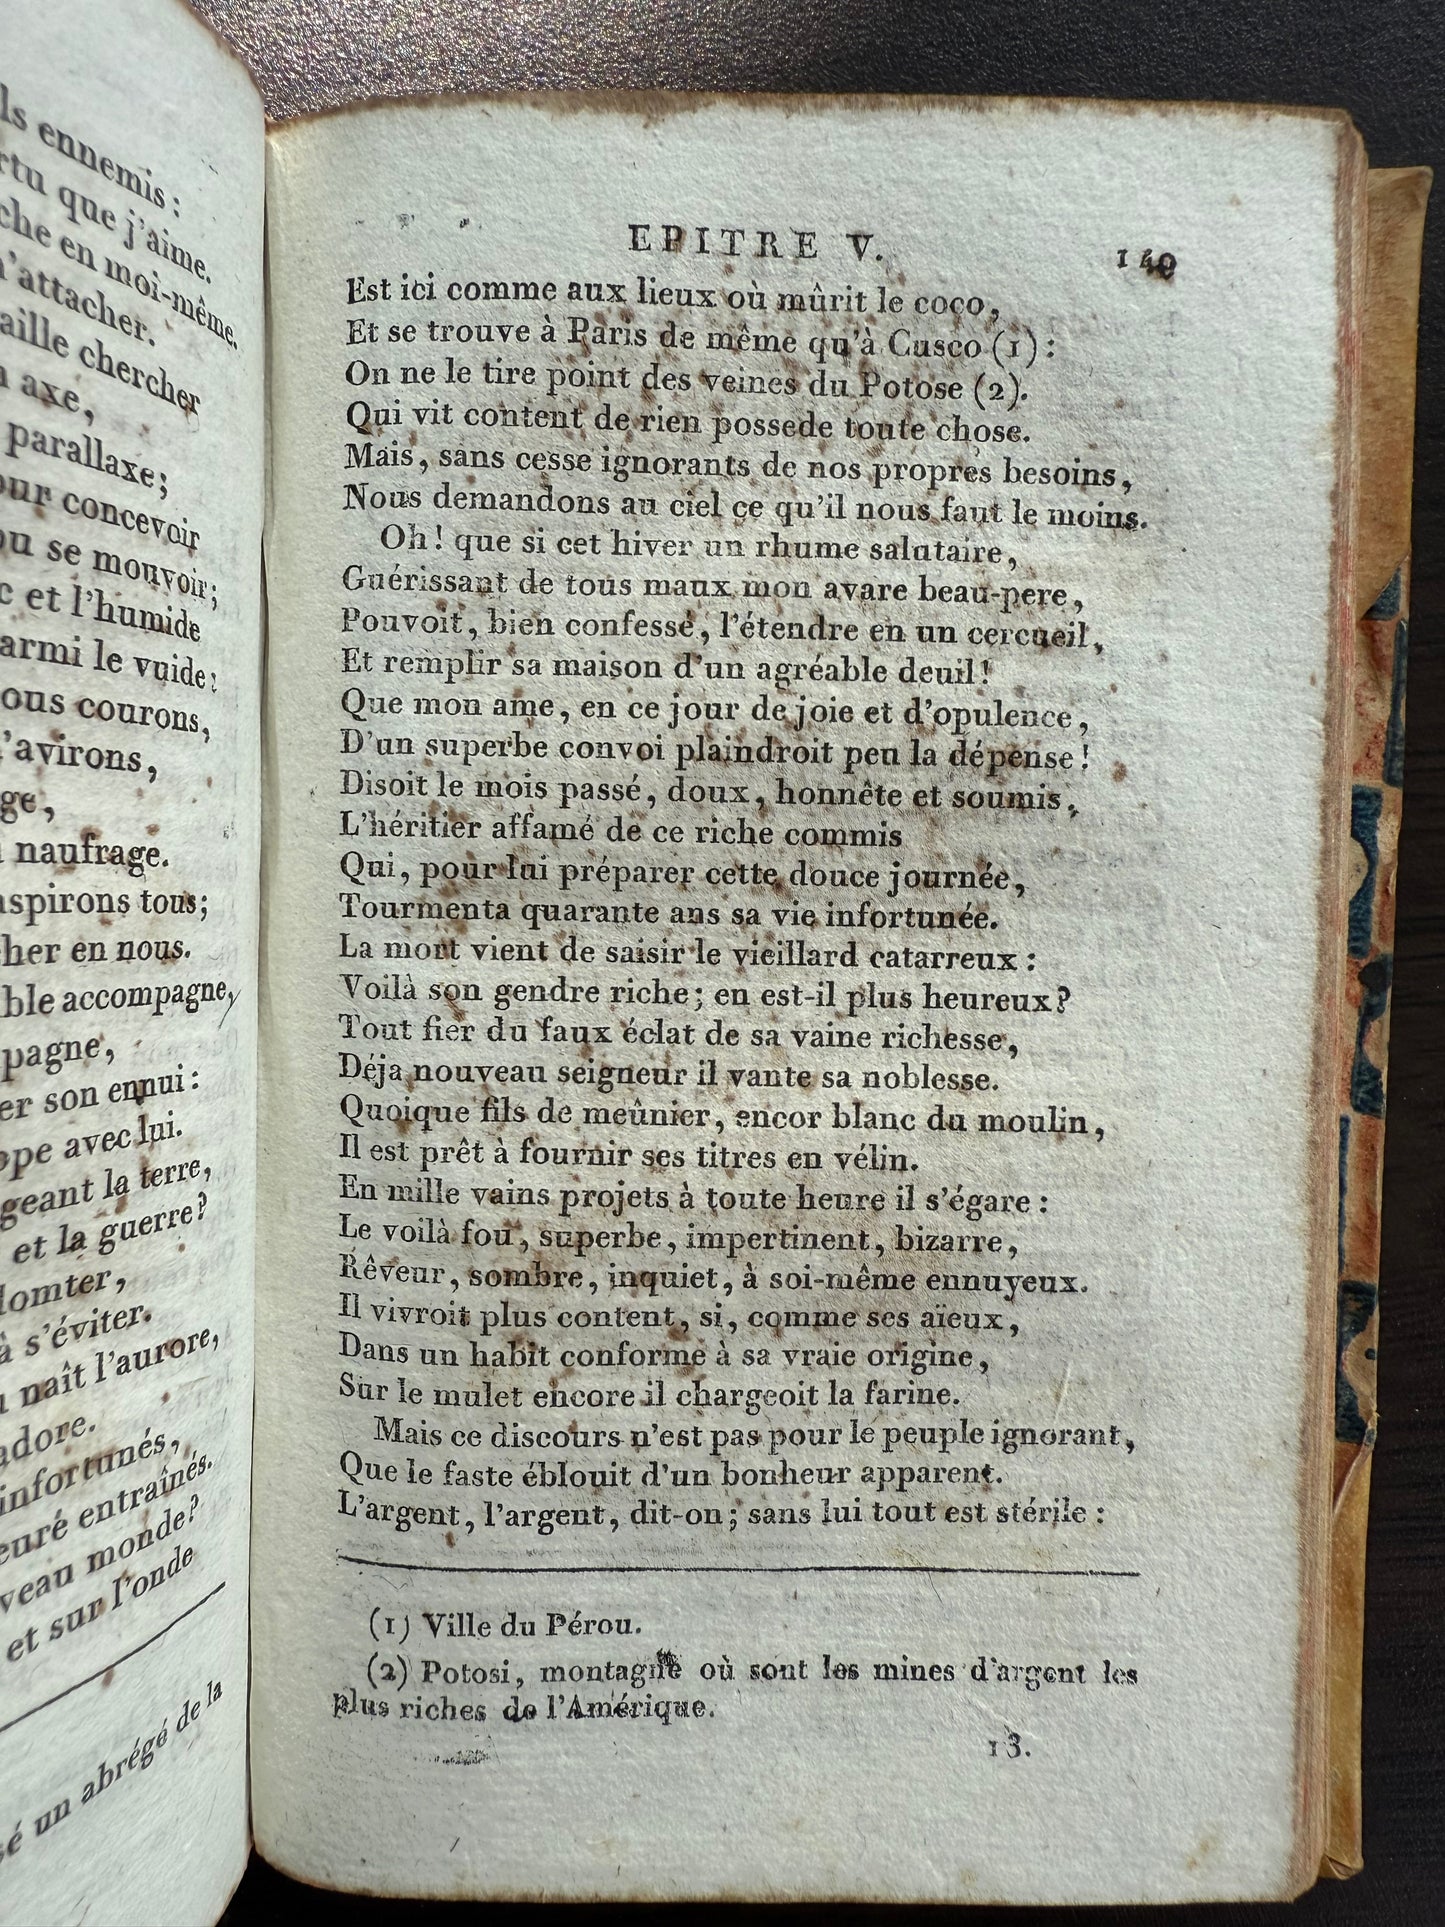 ennemis :
que j'aime.
che en moi-même.
n'attacher.
aille chercher
axe,
parallaxe;
concevoir
se mouvoir;
et l'humide
armi le vuide:
ous courons,
d'avirons,
ge,
naufrage.
aspirons tous;
cher en nous.
ble accompagne,
pagne,
er son ennui :
ope avec lui.
geant la terre,
et la guerre?
domter,
à s'éviter.
naît l'aurore,
adore.
infortunés,
euré entraînés.
veau monde?
et sur l'onde
sé un abrégé de la
EPITRE V. 149
Est ici comme aux lieux où mûrit le coco,
Et se trouve à Paris de même qu'à Cusco (1) :
On ne le tire point des veines du Potose (2).
Qui vit content de rien possede toute chose.
Mais, sans cesse ignorants de nos propres besoins,
Nous demandons au ciel ce qu'il nous faut le moins.
Oh! que si cet hiver un rhume salutaire,
Guérissant de tous maux mon avare beau-pere,
Pouvoit, bien confessé, l'étendre en un cercueil,
Et remplir sa maison d'un agréable deuil!
Que mon ame, en ce jour de joie et d'opulence,
D'un superbe convoi plaindroit peu la dépense!
Disoit le mois passé, doux, honnête et soumis,
L'héritier affamé de ce riche commis
Qui, pour lui préparer cette douce journée,
Tourmenta quarante ans sa vie infortunée.
La mort vient de saisir le vieillard catarreux :
Voilà son gendre riche; en est-il plus heureux?
Tout fier du faux éclat de sa vaine richesse,
Déja nouveau seigneur il vante sa noblesse.
Quoique fils de meûnier, encor blanc du moulin,
Il est prêt à fournir ses titres en vélin.
En mille vains projets à toute heure il s'égare :
Le voilà fou, superbe, impertinent, bizarre,
Rêveur, sombre, inquiet, à soi-même ennuyeux.
Il vivroit plus content, si, comme ses aïeux,
Dans un habit conforme à sa vraie origine,
Sur le mulet encore il chargeoit la farine.
Mais ce discours n'est pas pour le peuple ignorant,
Que le faste éblouit d'un bonheur apparent.
L'argent, l'argent, dit-on; sans lui tout est stérile :
(1) Ville du Pérou.
(2) Potosi, montagne où sont les mines d'argent les
plus riches de l'Amérique.
13.